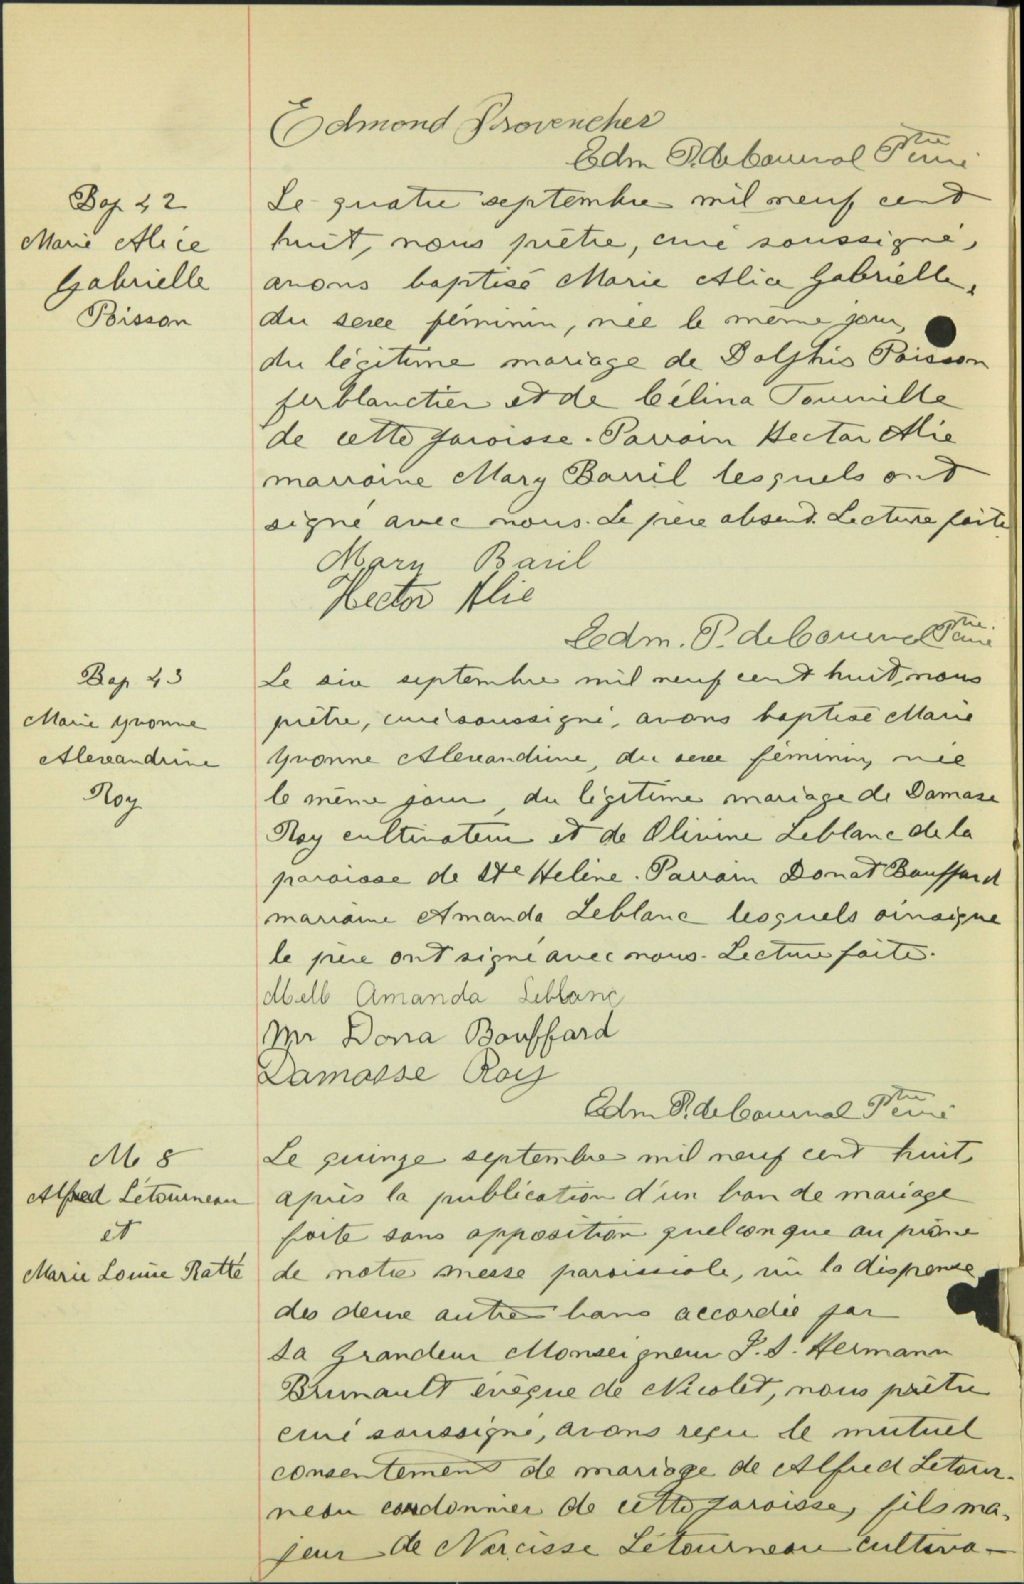 Edmond Provencher
Edm P. de Courval Ptre curé
Bap 42
Marie Alice
Gabrielle
Poisson
Le quatre septembre mil neuf cent
huit, nous prêtre, curé soussigné,
avons baptisé Marie Alice Gabrielle,
du sexe féminin, née le même jour,
du légitime mariage de Dolphis Poisson
ferblantier et de Célina Tourville
de cette paroisse. Parrain Hector Alie
marraine Mary Barril lesquels ont
signé avec nous. Le père absent. Lecture faite
Mary Baril
Hector Alie
Edm. P. de Courval Ptre. curé
Bap 43
Marie Yvonne
Alexandrine
Roy
Le six septembre mil neuf cent huit, nous
prêtre, curé soussigné, avons baptisé Marie
Yvonne Alexandrine, du sexe féminin, née
le même jour, du légitime mariage de Damase
Roy cultivateur et de Olivine Leblanc de la
paroisse de Ste Hélène. Parrain Donat Bouffard
marraine Amanda Leblanc lesquels ainsi que
le père ont signé avec nous. Lecture faite.
Melle Amanda Leblanc
Mr Dona Bouffard
Damasse Roy
Edm P. de Courval Ptre curé
M 8
Alfred Létourneau
et
Marie Louise Ratté
Le quinze septembre mil neuf cent huit,
après la publication d'un ban de mariage
faite sans opposition quelconque au prône
de notre messe paroissiale, vu la dispense
des deux autres bans accordée par
Sa Grandeur Monseigneur J. S. Hermann
Brunault évêque de Nicolet, nous prêtre
curé soussigné, avons reçu le mutuel
consentement de mariage de Alfred Letour-
neau cordonnier de cette paroisse, fils ma-
jeur de Narcisse Létourneau cultiva-